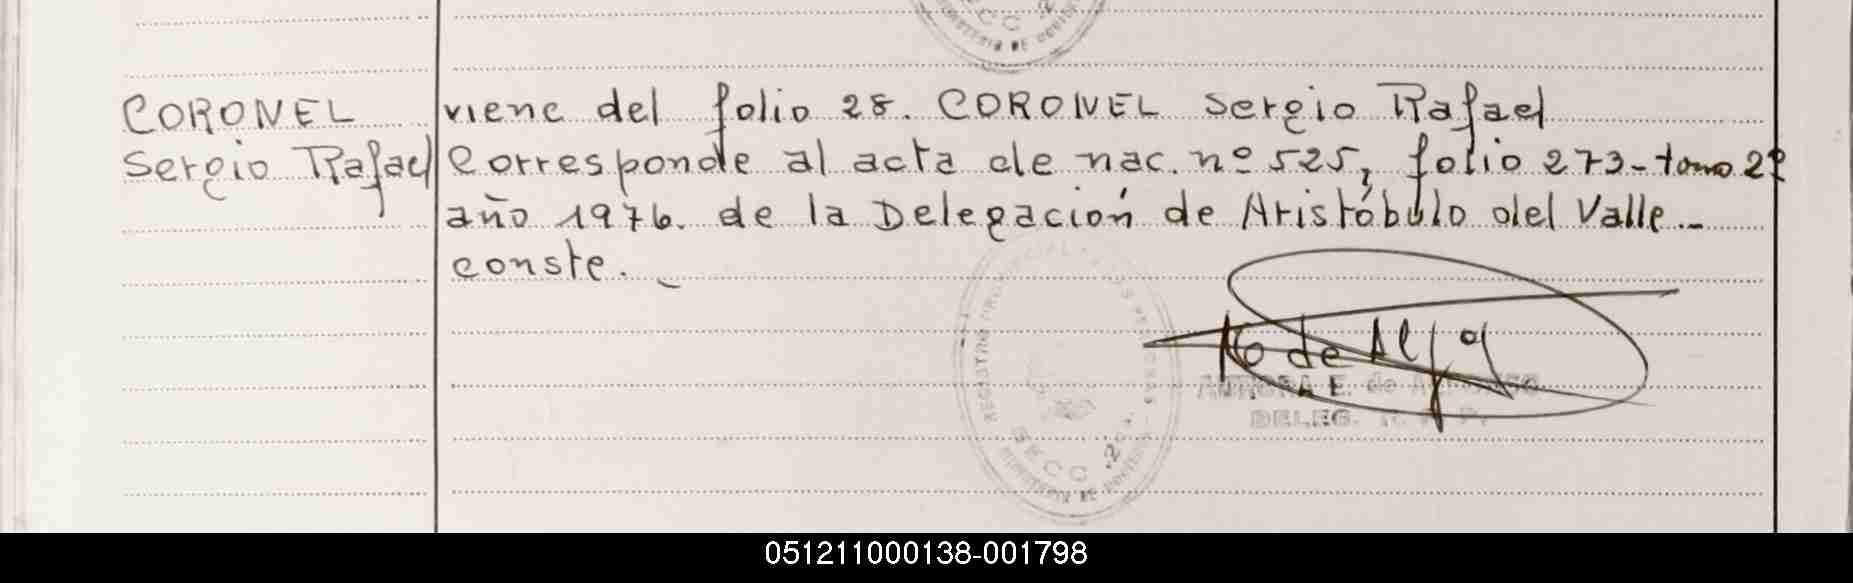 SECC. 2
CORONEL
Sergio Rafael
viene del folio 28. CORONEL Sergio Rafael
Corresponde al acta de nac. nº 525, folio 273-tomo 2º
año 1976. de la Delegación de Aristóbulo del Valle..
conste.
REGISTRO PROVINCIAL DE LAS PERSONAS
SECC. 201.
AURORA E. de
DELEG. R. P.
051211000138-001798